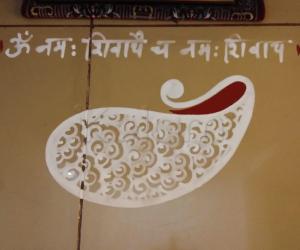 ॐ नमः शिवायै च नमः शिवाय